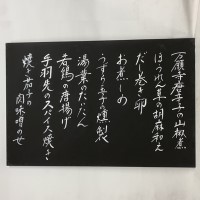 万願寺唐辛子の山椒煮
ほうれん草の胡麻和え
だし巻き卵
お煮〆
うずら玉子の燻製
湯葉のたいたん
若鶏の唐揚げ
手羽先のスパイス焼き
焼き茄子の肉味噌のせ